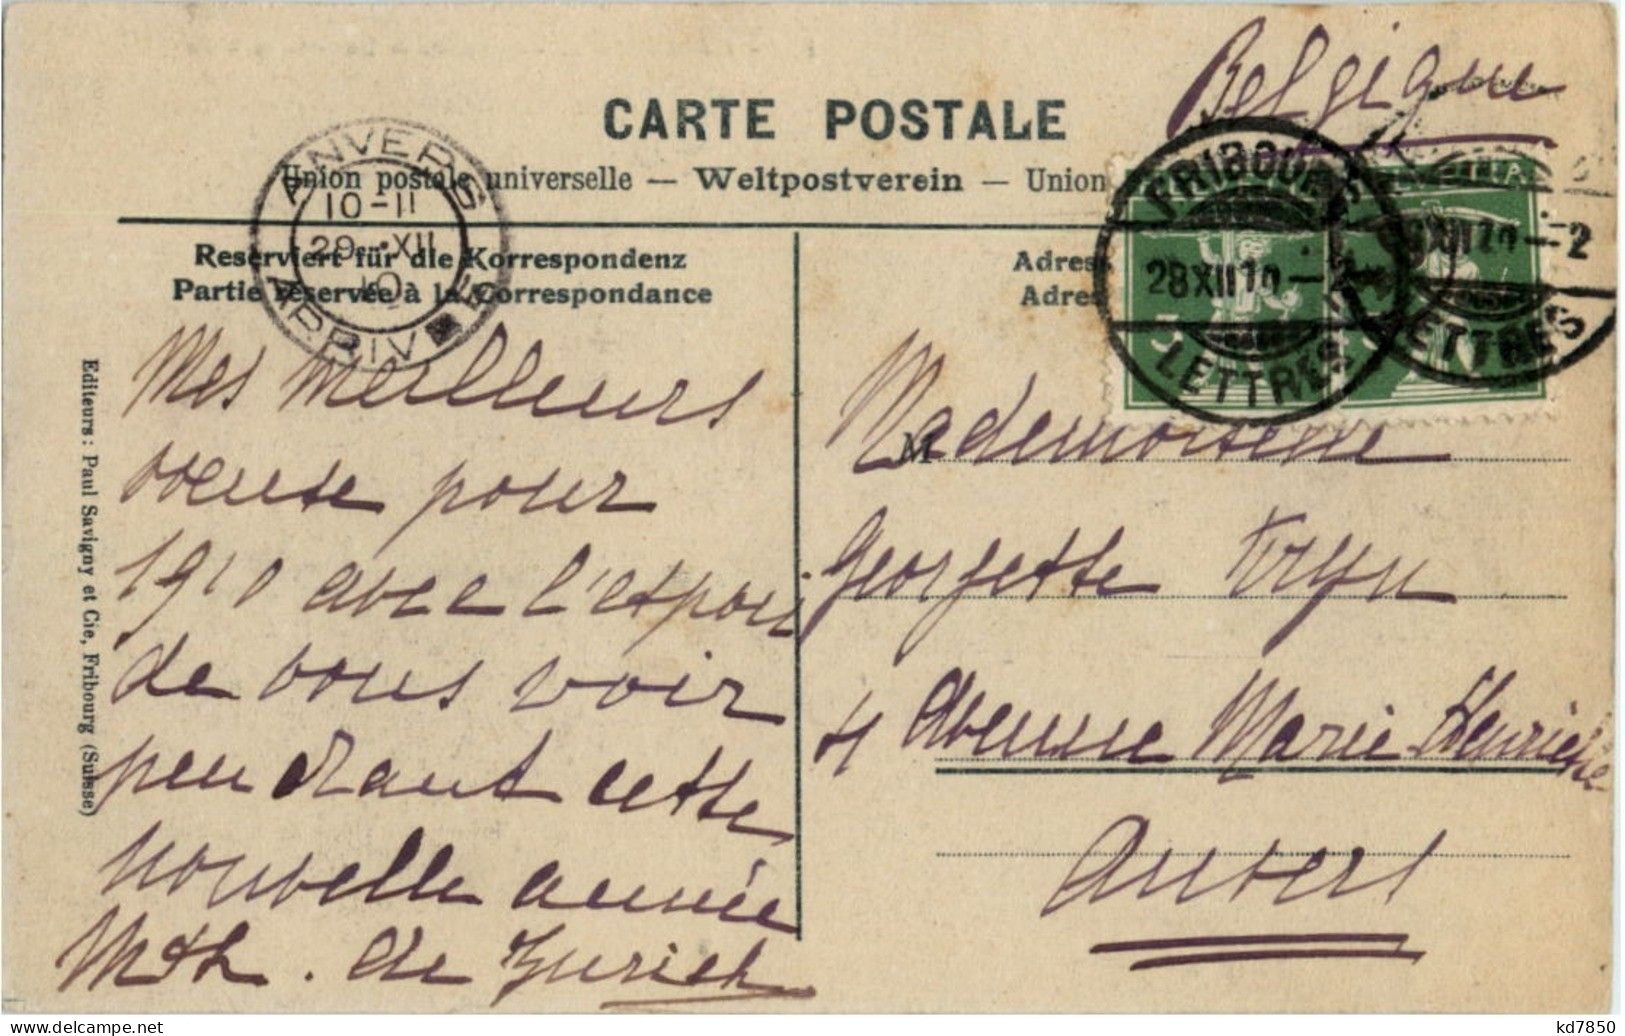 Belgique
CARTE POSTALE
Union postale universelle — Weltpostverein — Union
ANVERS
10-11
29 XII
10
ARRIV
FRIBOURG
28XII10
LETTRES
XII10—2
LETTRES
Reserviert für die Korrespondenz
Partie réservée à la Correspondance
Adres
Adres
Editeurs: Paul Savigny et Cie, Fribourg (Suisse)
Mes meilleurs
voeux pour
1910 avec l'espoir
de vous voir
pendant cette
nouvelle année
de Zurich
M
Mademoiselle
Georgette
4 Avenue Marie Henriette
Anvers
kd7850